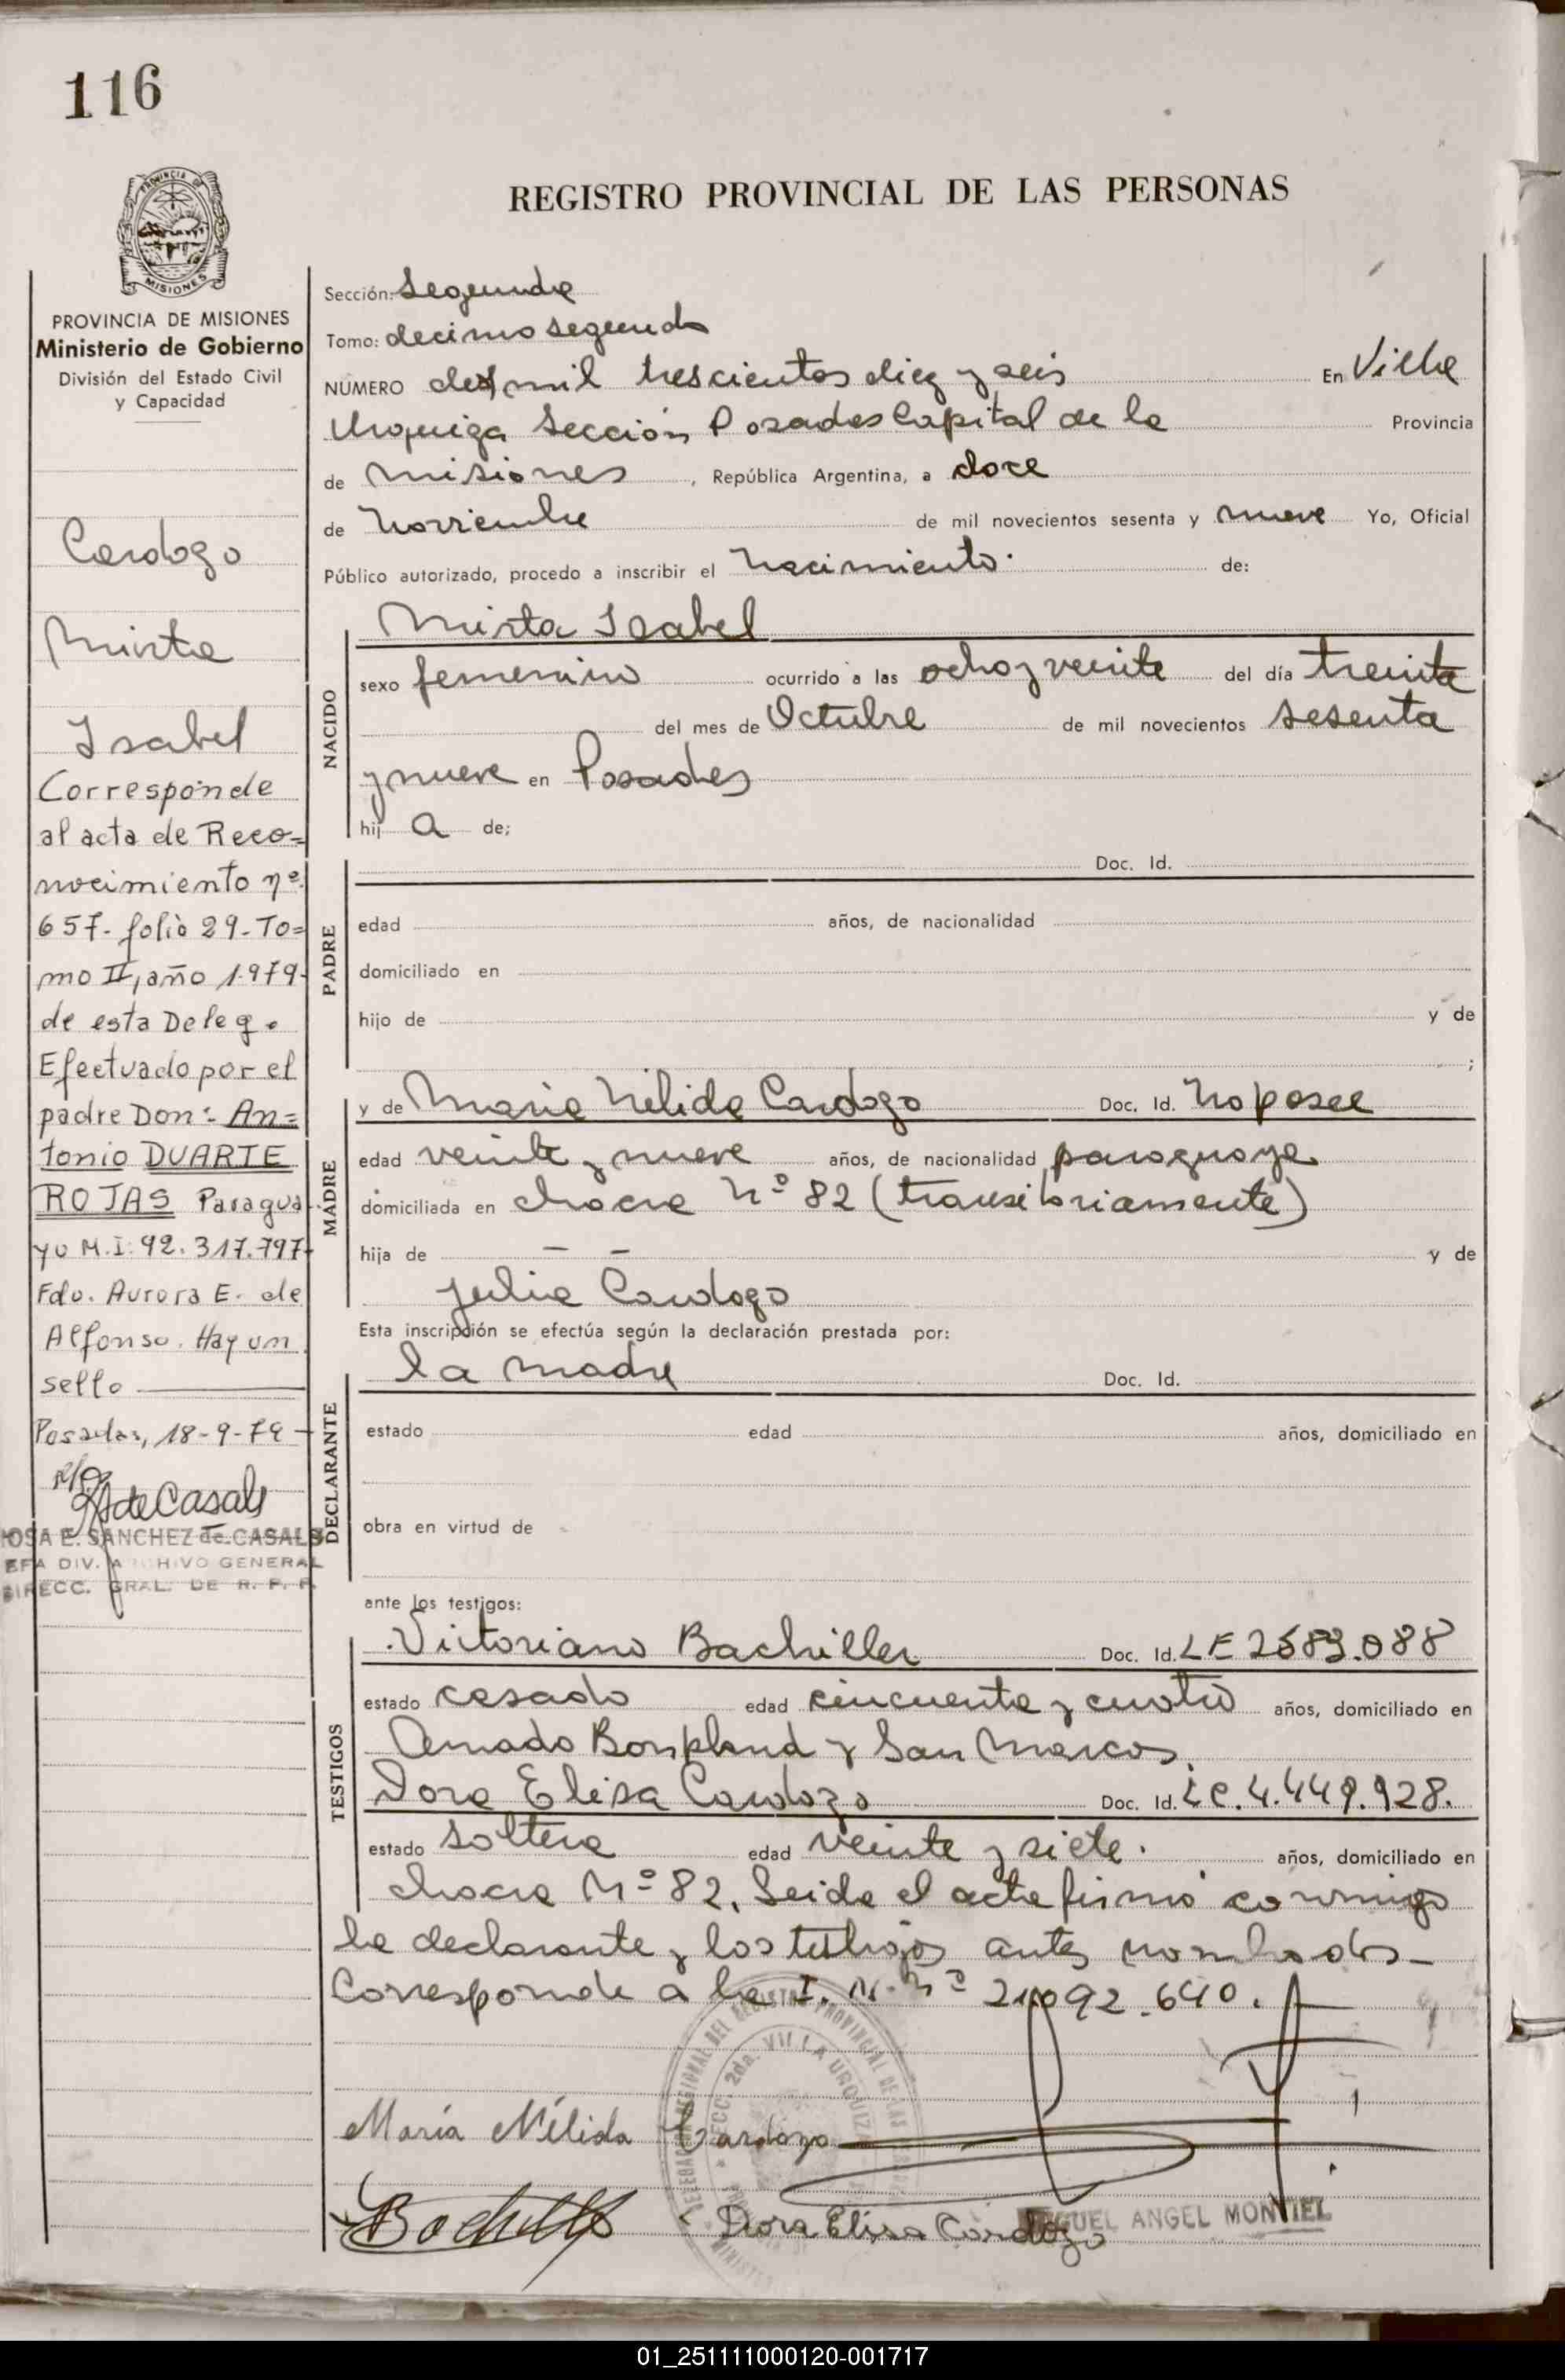 116
REGISTRO PROVINCIAL DE LAS PERSONAS
PROVINCIA DE
MISIONES
PROVINCIA DE MISIONES
Ministerio de Gobierno
División del Estado Civil
y Capacidad
Cardozo
Mirta
Isabel
Corresponde
al acta de Reco=
nocimiento nº
657- folio 29- To=
mo II, año 1.979-
de esta Deleg.
Efectuado por el
padre Don: An=
tonio DUARTE
ROJAS Paragua
yo M.I: 92.317.797-
Fdo. Aurora E. de
Alfonso. Hay un
sello
Posadas, 18-9-79-
de Casals
ROSA E. SANCHEZ de CASALS
JEFA DIV. ARCHIVO GENERAL
DIRECC. GRAL. DE R. P. P.
Sección: Segunda
Tomo: decimo segundo
NUMERO dos mil trescientos diez y seis En Villa
Urquiza Sección Posadas Capital de la Provincia
de Misiones, República Argentina, a doce
de Noviembre de mil novecientos sesenta y nueve Yo, Oficial
Público autorizado, procedo a inscribir el Nacimiento. de:
NACIDO
Mirta Isabel
sexo femenino ocurrido a las ocho y veinte del día treinta
del mes de Octubre de mil novecientos sesenta
y nueve en Posadas
hij a de;
PADRE
Doc. Id.
edad años, de nacionalidad
domiciliado en
hijo de y de
;
MADRE
y de Maria Nélida Cardozo Doc. Id. No posee
edad veinte y nueve años, de nacionalidad paraguaya
domiciliada en chacra Nº 82 (transitoriamente)
hija de — — y de
Julia Cardozo
Esta inscripción se efectúa según la declaración prestada por:
DECLARANTE
la madre Doc. Id.
estado edad años, domiciliado en
obra en virtud de
ante los testigos:
TESTIGOS
Victoriano Bachiller Doc. Id. LE 2583.088
estado casado edad cincuenta y cuatro años, domiciliado en
Amado Bonpland y San Marcos.
Dora Elisa Cardozo Doc. Id. LC. 4.449.928.
estado soltera edad veinte y siete. años, domiciliado en
chacra Nº 82. Leida el acta firmó conmigo
la declarante y los testigos antes nombrados-
Corresponde a la I. N. Nº 21.092.640.
María Nélida Cardozo
Bachiller
Dora Elisa Cardozo
MIGUEL ANGEL MONTIEL
01_251111000120-001717